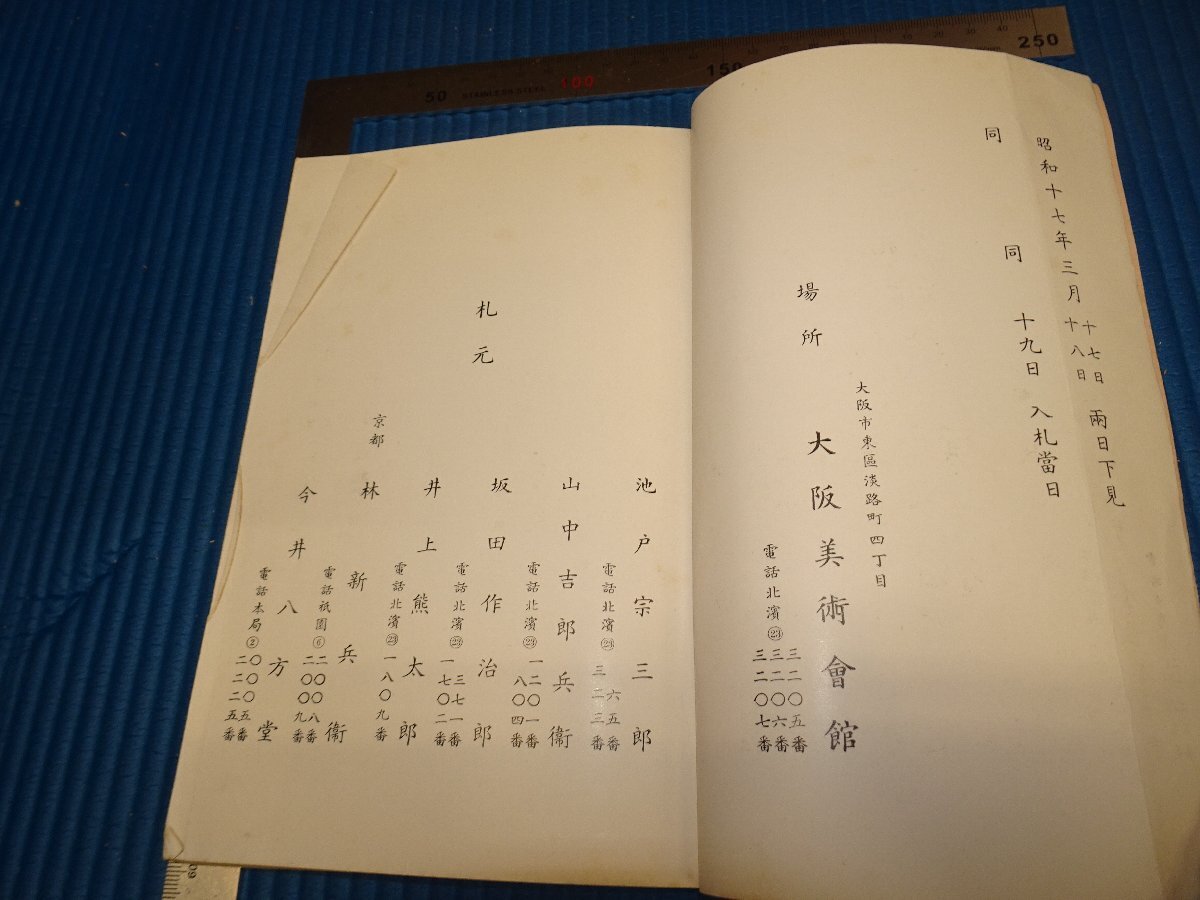 50
STAINLESS STEEL
100
150
250
昭和十七年三月 十七日 十八日 兩日下見
同 同 十九日 入札當日
大阪市東區淡路町四丁目
場所 大阪美術會館
電話北濱㉓ 三二〇五番 三二〇六番 三二〇七番
札元
池戸宗三郎
電話北濱㉓ 六五番 三二三番
山中吉郎兵衞
電話北濱㉓ 一二〇一番 八〇四番
坂田作治郎
電話北濱㉓ 三七一番 一七〇二番
井上熊太郎
電話北濱㉓ 一八〇九番
京都 林新兵衞
電話祇園⑥ 二〇〇八番 二〇〇九番
今井八方堂
電話本局② 〇〇五番 二二二五番